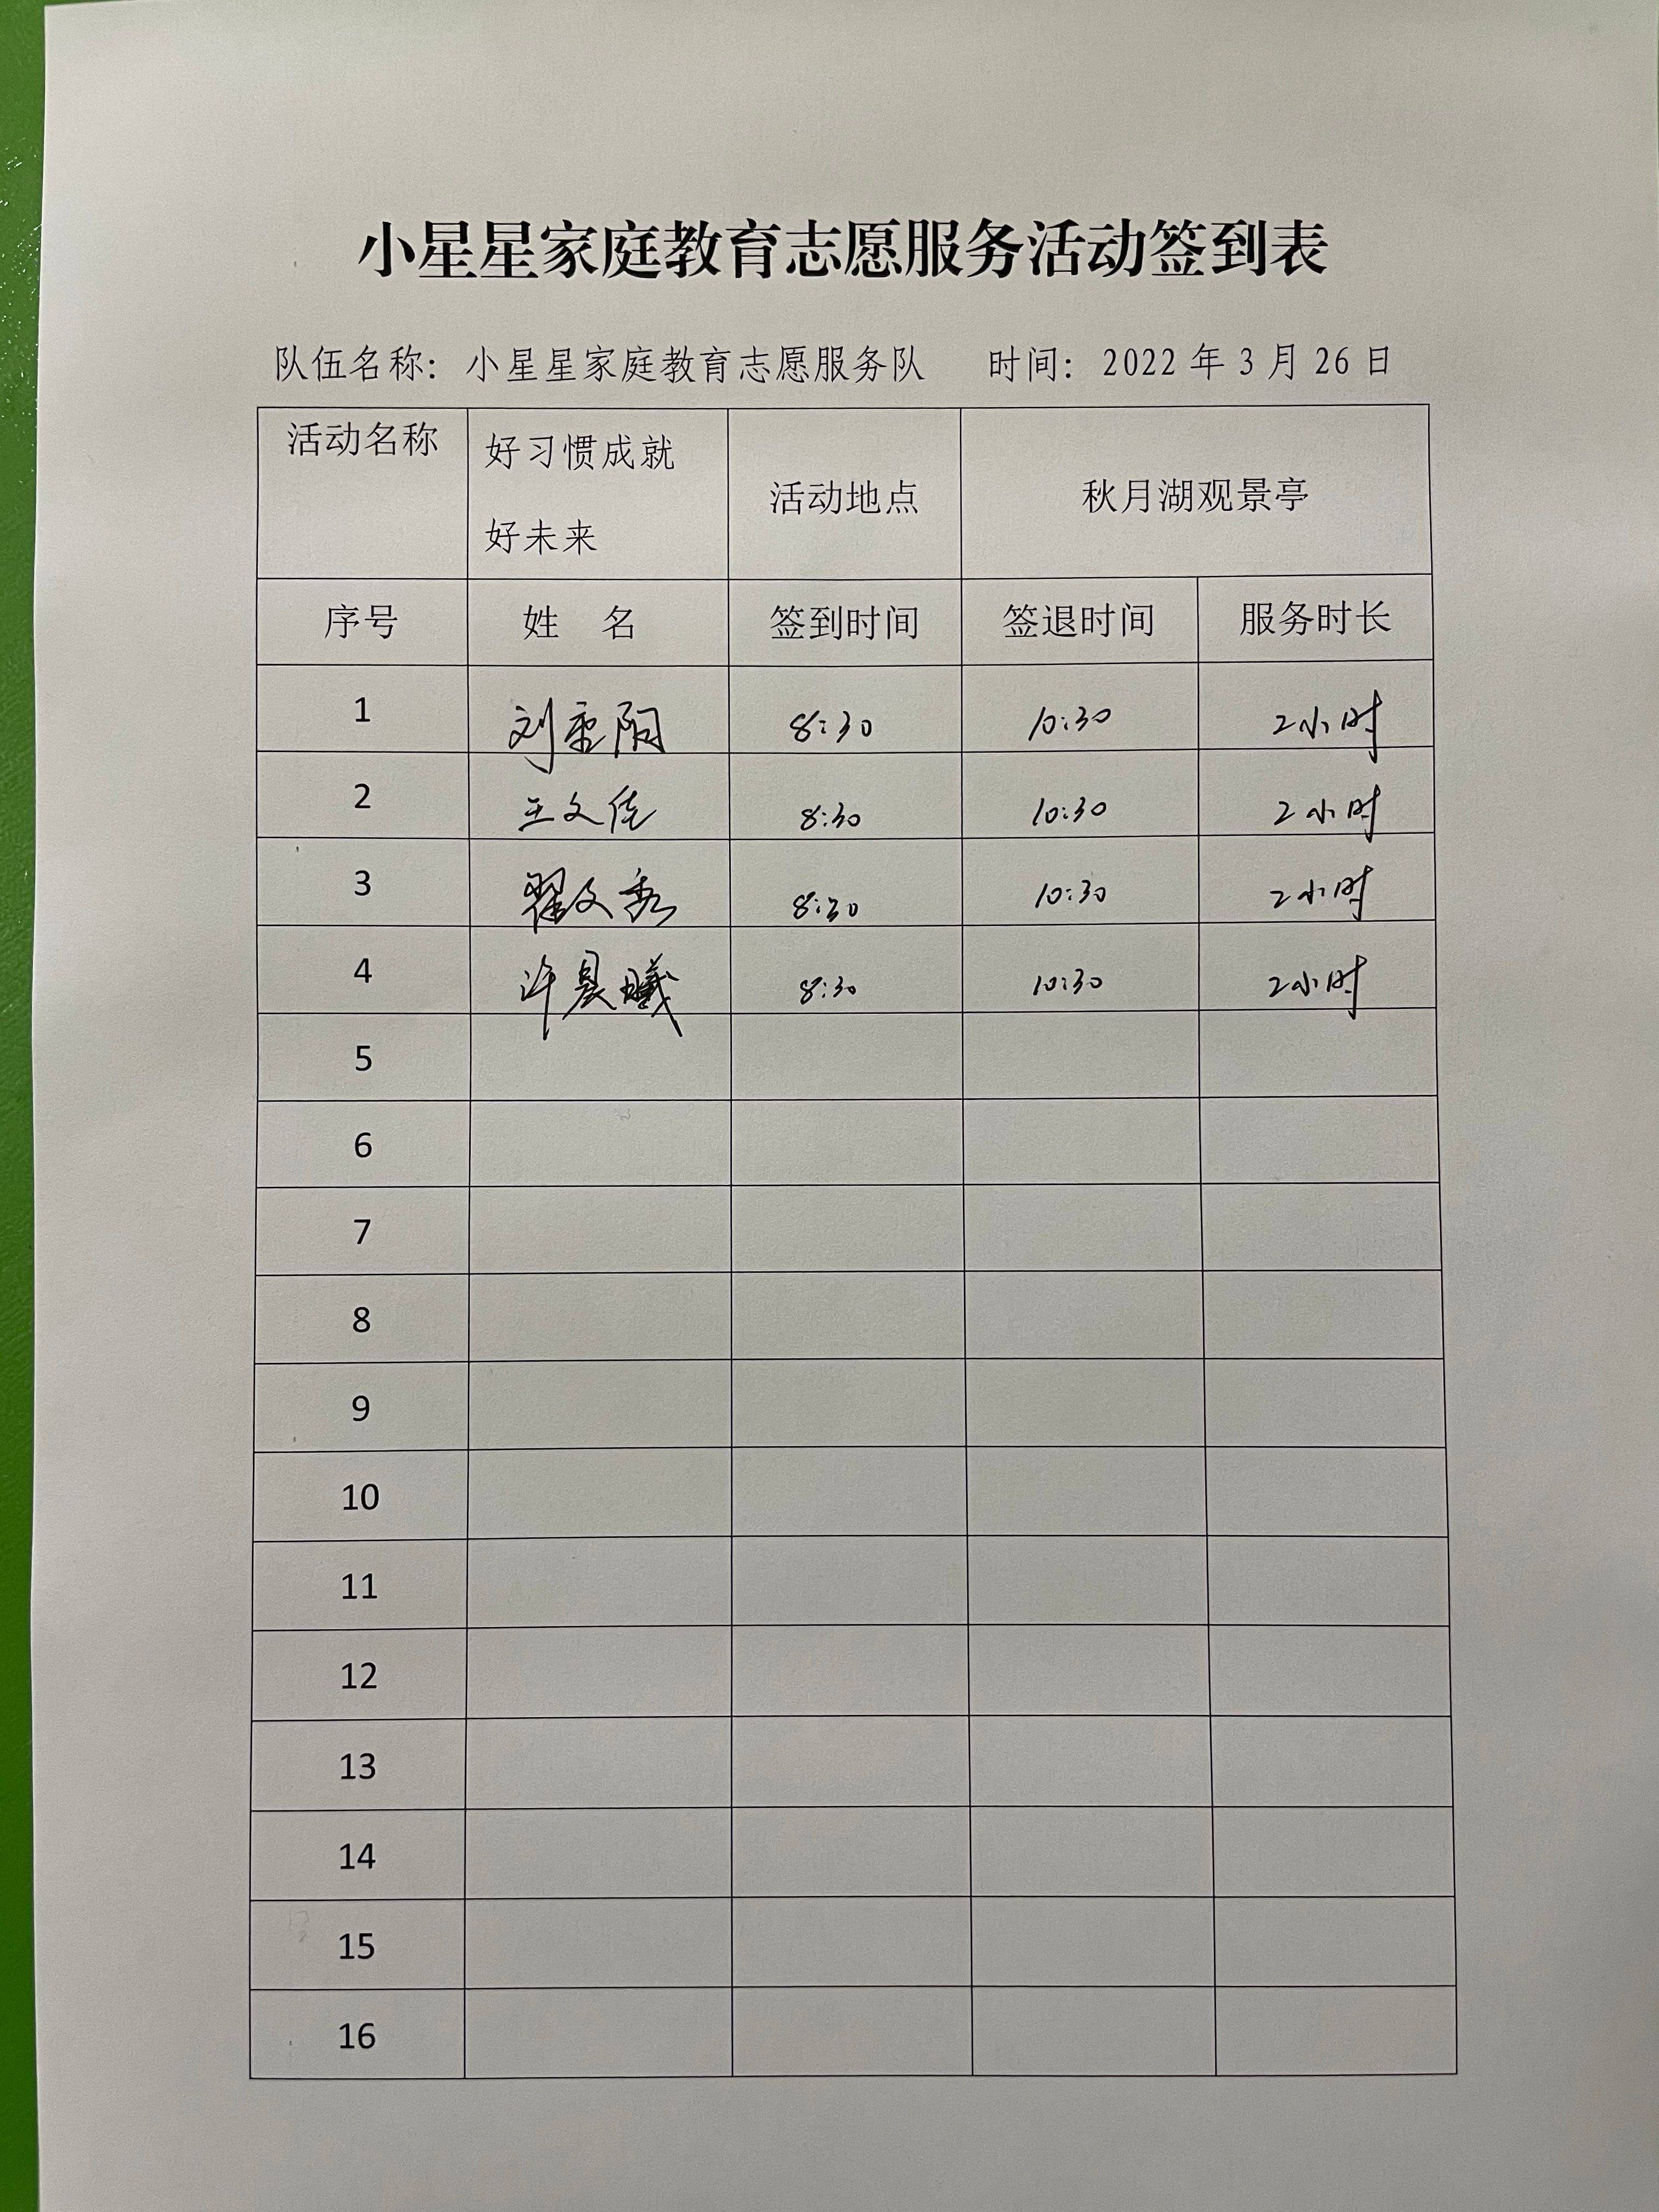 小星星家庭教育志愿服务活动签到表
队伍名称：小星星家庭教育志愿服务队 时间：2022 年 3 月 26 日
活动名称 好习惯成就 活动地点 秋月湖观景亭
好未来
序号 姓 名 签到时间 签退时间 服务时长
1 刘重阳 8:30 10:30 2小时
2 王文佳 8:30 10:30 2小时
3 翟文秀 8:30 10:30 2小时
4 许晨曦 8:30 10:30 2小时
5
6
7
8
9
10
11
12
13
14
15
16